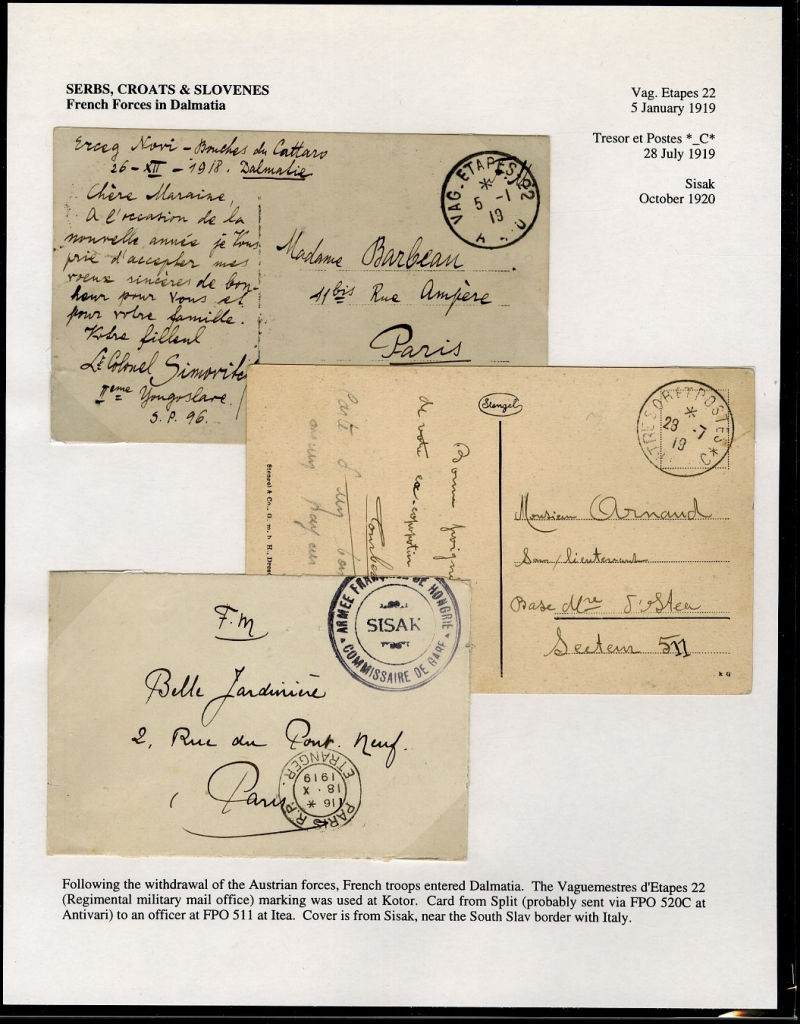 SERBS, CROATS & SLOVENES
French Forces in Dalmatia
Vag. Etapes 22
5 January 1919
Tresor et Postes *_C*
28 July 1919
Sisak
October 1920
Erceg Novi - Bouches du Cattaro
26 - XII - 1918. Dalmatie
Chère Maraine,
A l'occasion de la
nouvelle année je Vous
prie d'accepter mes
voeux sincères de bon-
heur pour Vous et
pour votre famille.
Votre filleul
Lt Colonel Simovitch
IIeme Yougoslave.
S. P. 96.
VAG. ETAPES
5 -1
19
Madame Barbeau
11 bis Rue Ampère
Paris
Stengel
TRESOR ET POSTES * C *
-7
19
Bonne
de votre ex-
Stengel & Co., G. m. b. H.,
Monsieur Arnaud
Sous/lieutenant
Base Mre d'Itea
Secteur 511
F. M
ARMEE FRANÇAISE DE HONGRIE
SISAK
COMMISSAIRE DE GARE
Belle Jardinière
2, Rue du Pont. Neuf.
Paris
PARIS R.P.
16 *
18 · X
1919
ETRANGER
Following the withdrawal of the Austrian forces, French troops entered Dalmatia. The Vaguemestres d'Etapes 22
(Regimental military mail office) marking was used at Kotor. Card from Split (probably sent via FPO 520C at
Antivari) to an officer at FPO 511 at Itea. Cover is from Sisak, near the South Slav border with Italy.